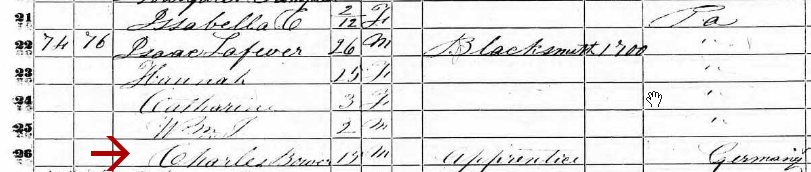 21 Issabella C 2/12 F Pa
22 74 76 Isaac Lafever 26 M Blacksmith 1700 "
23 Hannah 25 F "
24 Catharine 3 F "
25 Wm I 2 M "
26 Charles Bower 19 M Apprentice Germany